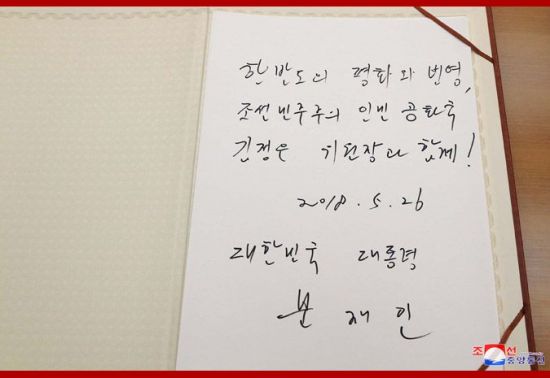 한반도의 평화와 번영,
조선민주주의 인민 공화국
김정은 위원장과 함께!
2018. 5. 26
대한민국 대통령
문재인
조선
중앙통신